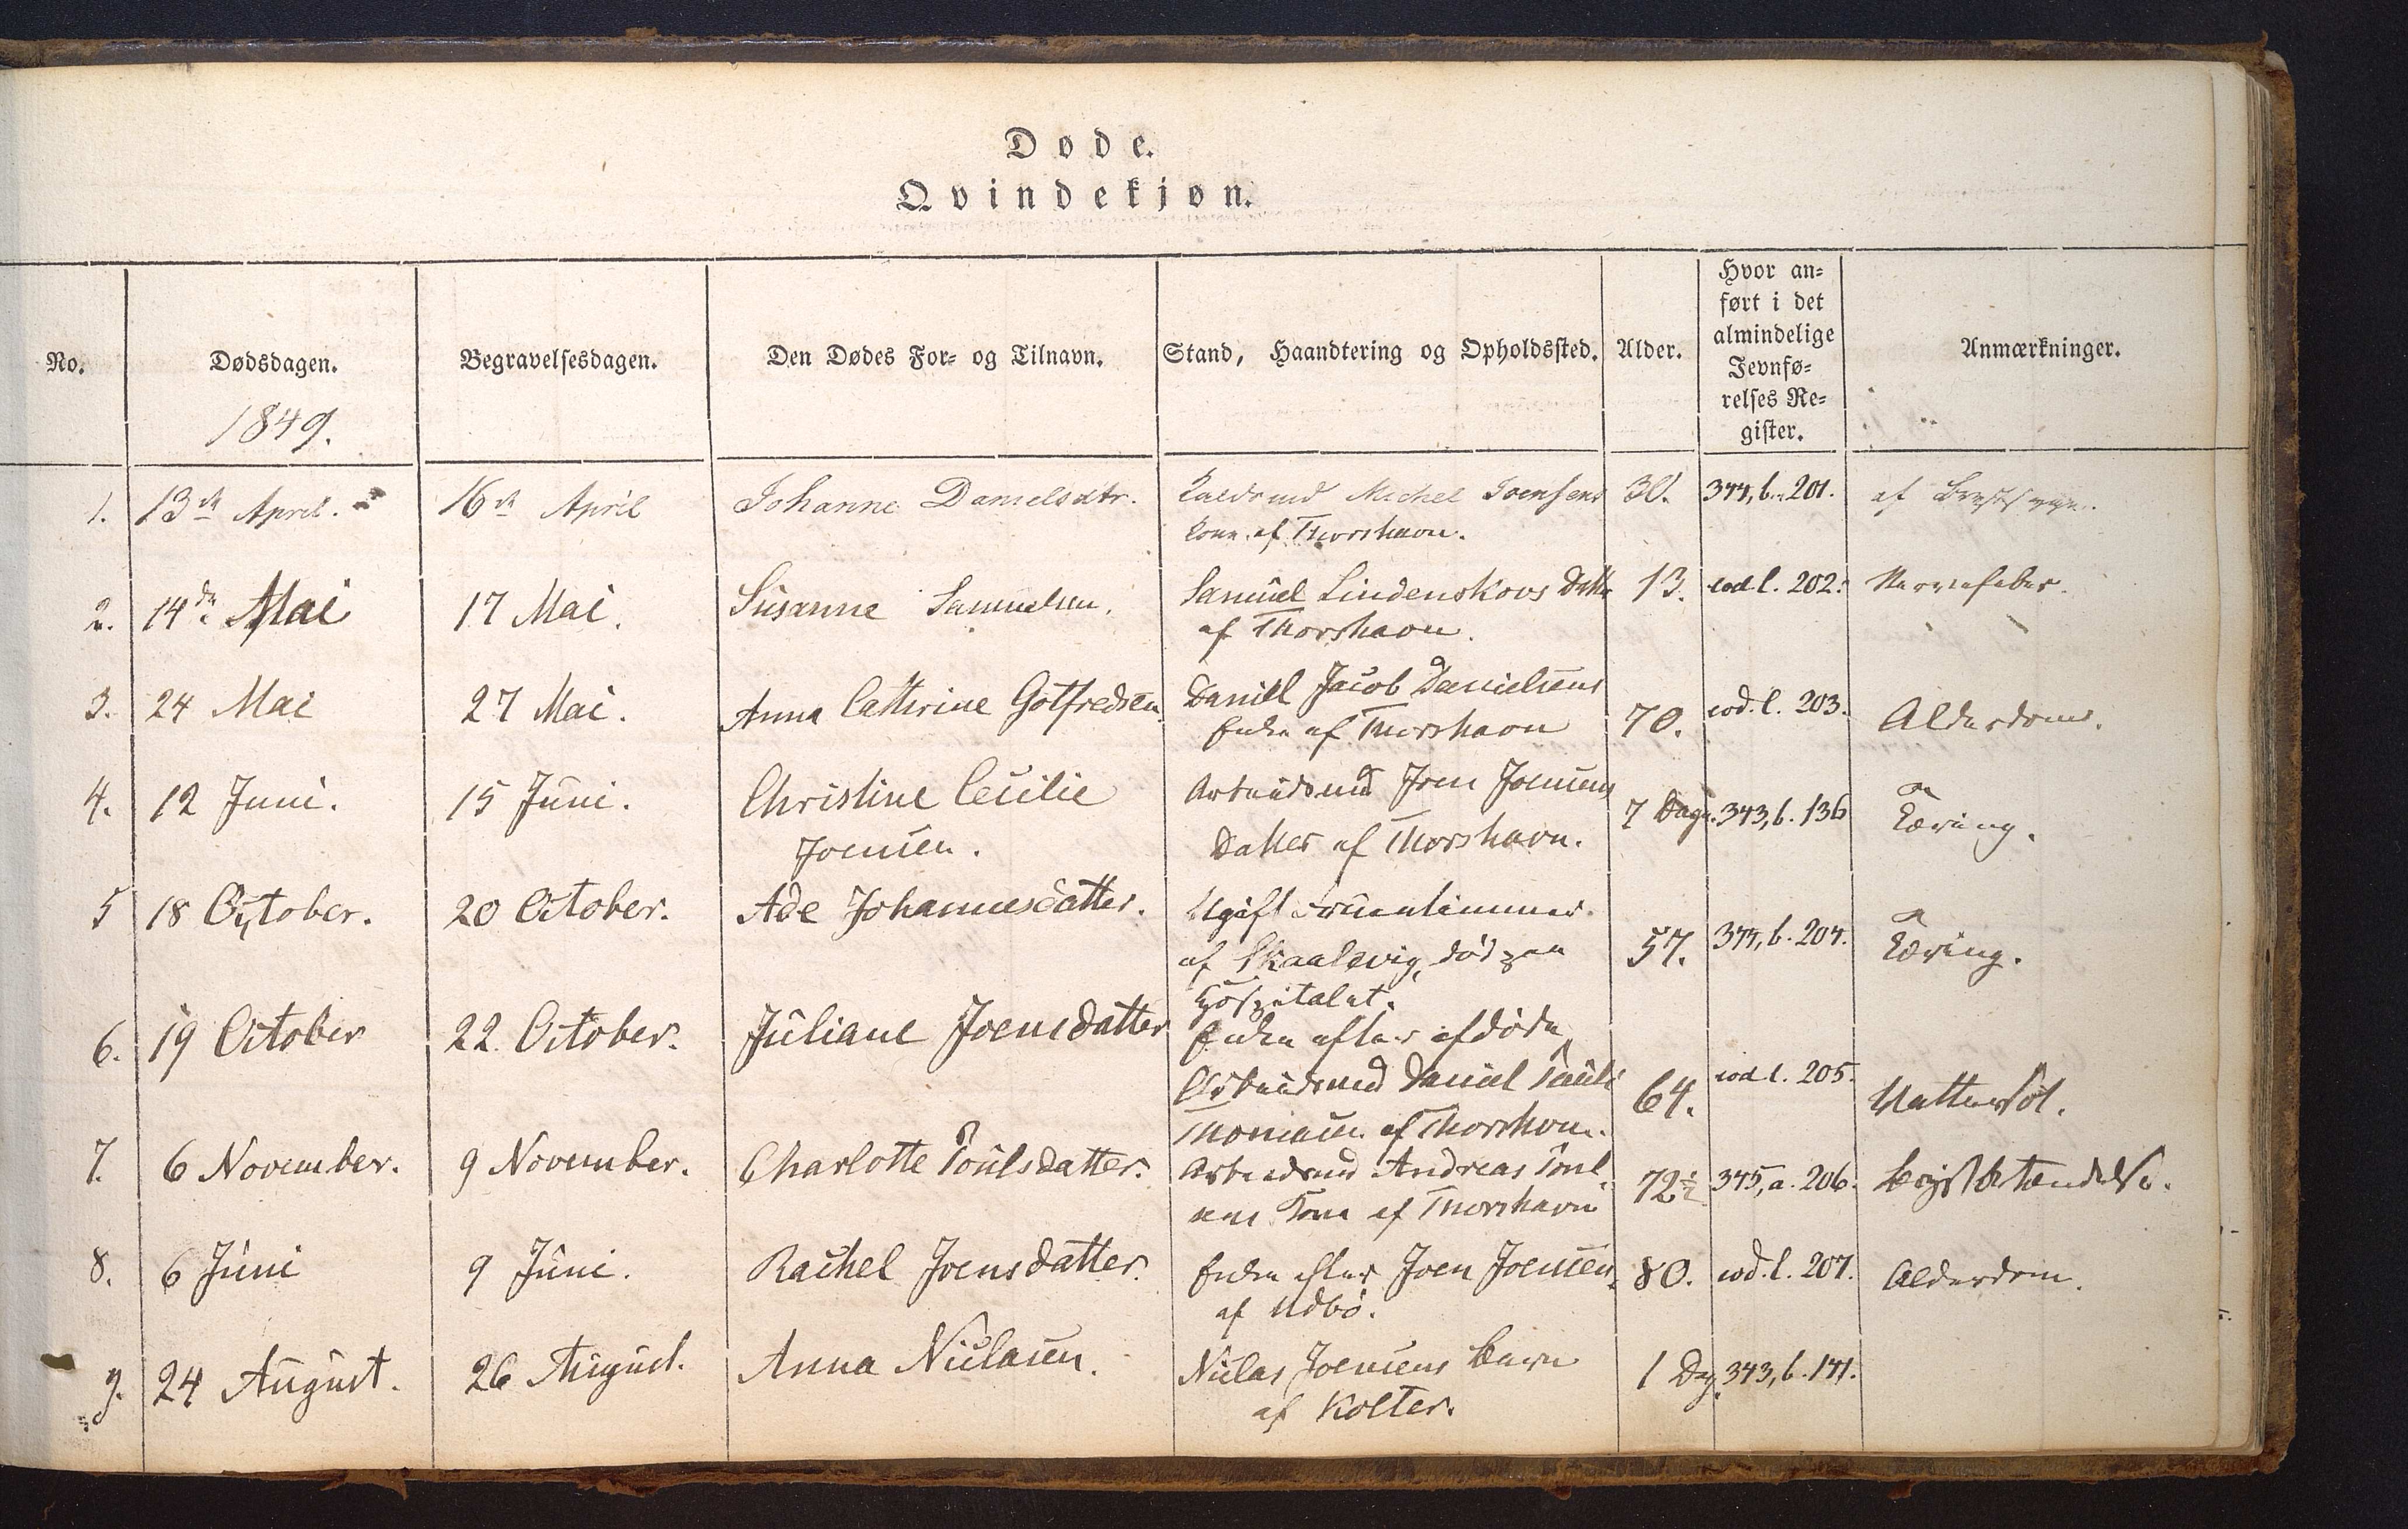 Døde.
Qvindekjøn.
No.
Dødsdagen.
1849.
Begravelsesdagen.
Den Dødes For- og Tilnavn.
Stand, Haandtering og Opholdssted.
Alder.
Hvor an-
ført i det
almindelige
Jevnfø-
relses Re-
gister.
Anmærkninger.
1. 13de April. 16de April Johanne Danielsdtr. Michel Joensens 30. 344, b. 201. af Brystsyge.
Kone af Thorshavn.
2. 14de Mai 17 Mai. Susanne Samuelsen. Samuel Lindenskovs Datter 13. eod. l. 202. Nervefeber.
af Thorshavn.
3. 24 Mai 27 Mai. Anna Cathrine Gotfredsen. Daniel Jacob Danielsens 70. eod. l. 203. Alderdom.
Enke af Thorshavn
4. 12 Juni. 15 Juni. Christine Cecilie Arbeidsmd Joen Joensens 7 Dage. 343, b. 136 Tæring.
Joensen. Datter af Thorshavn.
5 18 October. 20 October. Ade Johannesdatter. Ugift Fruentimmer 57. 344, b. 204. Tæring.
af Skaalevig, død paa
Hospitalet.
6. 19 October 22 October. Juliane Joensdatter Enke efter afdøde
Arbeidsmd Daniel Pauli 64. eod. l. 205.
Thomasen af Thorshavn.
7. 6 November. 9 November. Charlotte Poulsdatter. Arbeidsmd Andreas Poul- 72½ 345, a. 206. Brystbetændelse.
sens Kone af Thorshavn
8. 6 Juni 9 Juni. Rachel Joensdatter. Enke efter Joen Joensen 80. eod. l. 207. Alderdom.
af Udbø.
9. 24 August. 26 August. Anna Niclasen. Niclas Joensens Barn 1 Dag. 343, b. 141.
af Kolter.